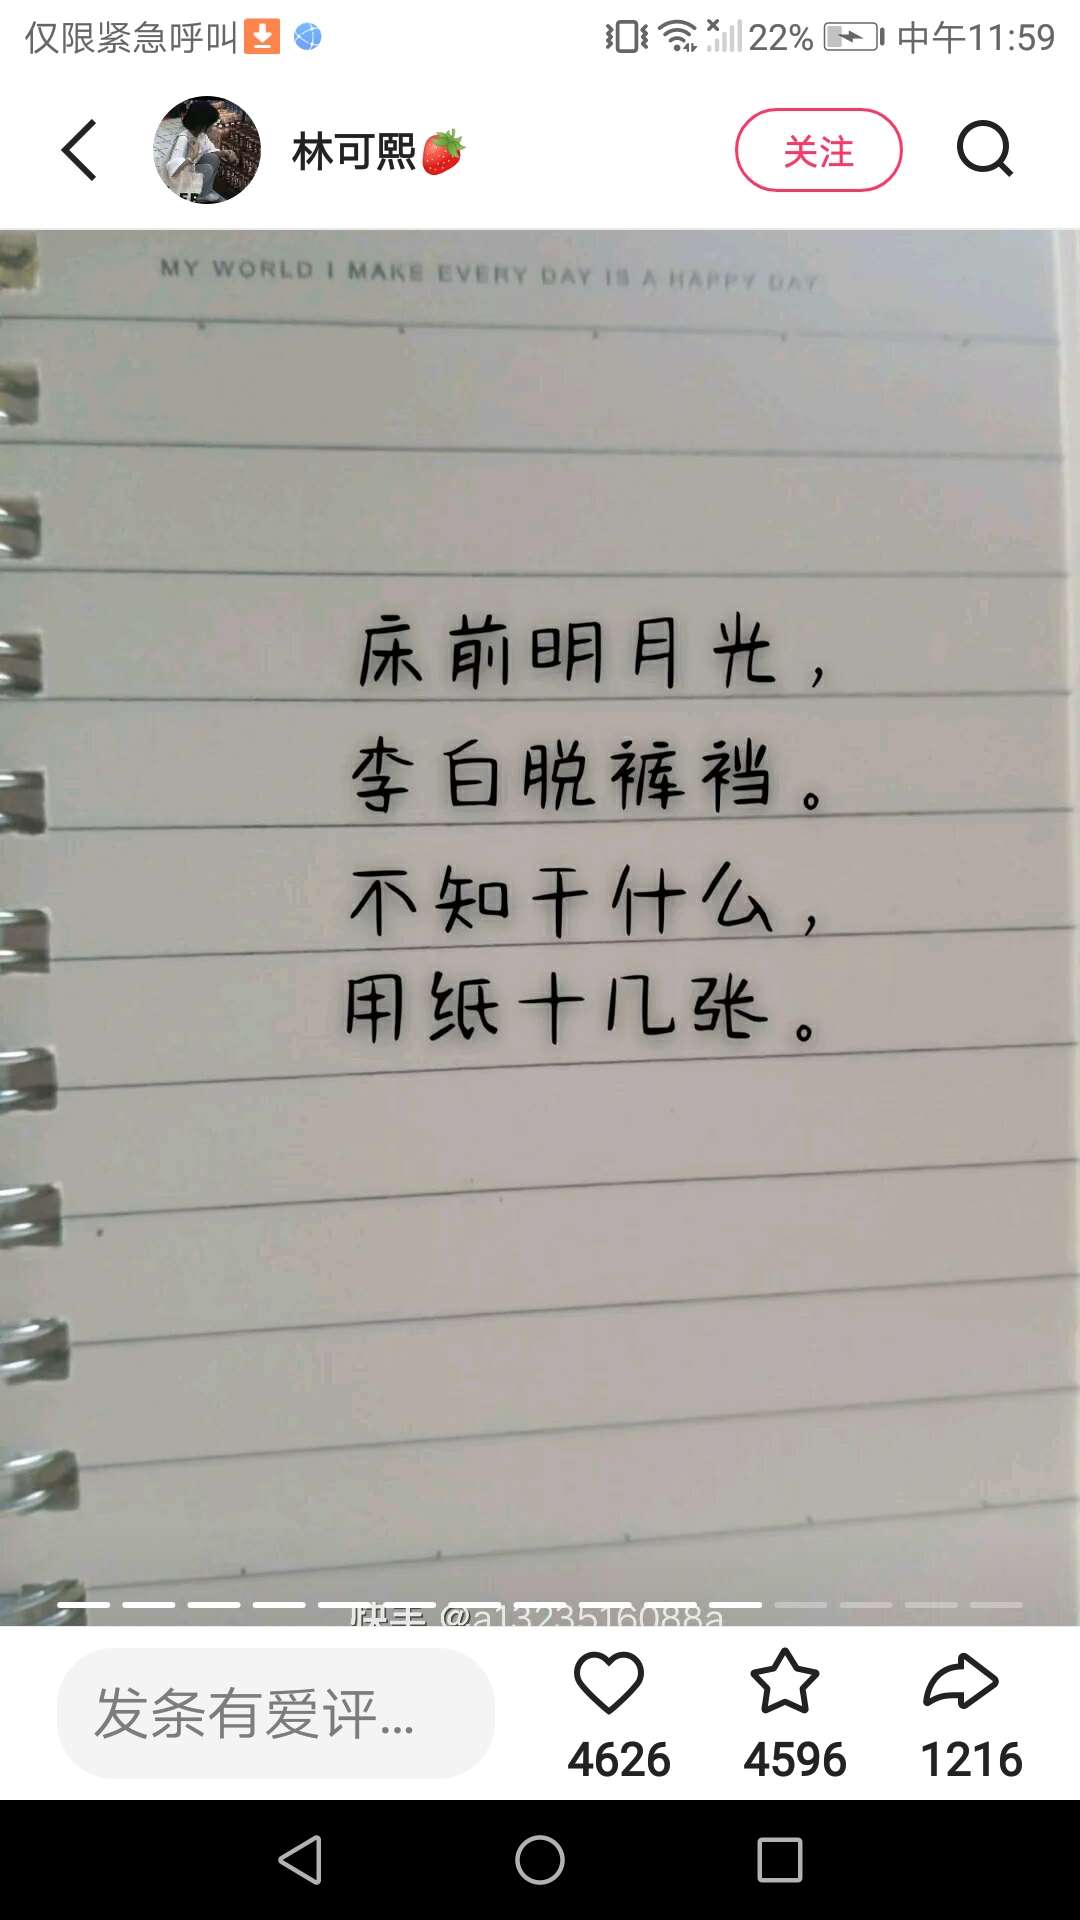 仅限紧急呼叫 22% 中午11:59
林可熙 关注
MY WORLD I MAKE EVERY DAY IS A HAPPY DAY
床前明月光，
李白脱裤裆。
不知干什么，
用纸十几张。
快手 @a1323516088a
发条有爱评...
4626 4596 1216